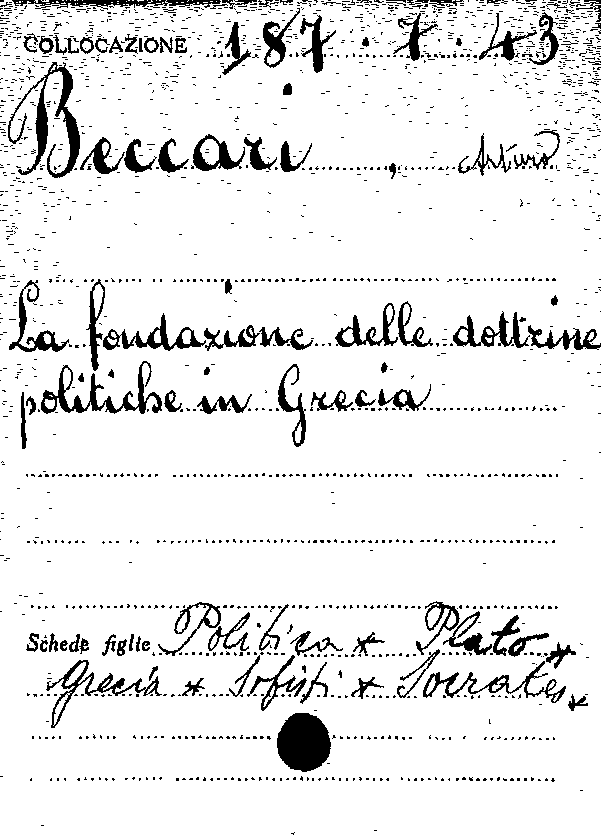 COLLOCAZIONE 187.7.43
Beccari, Arturo
La fondazione delle dottrine
politiche in Grecia
Schede figlie Politica * Plato *
Grecia * Sofisti * Socrates *